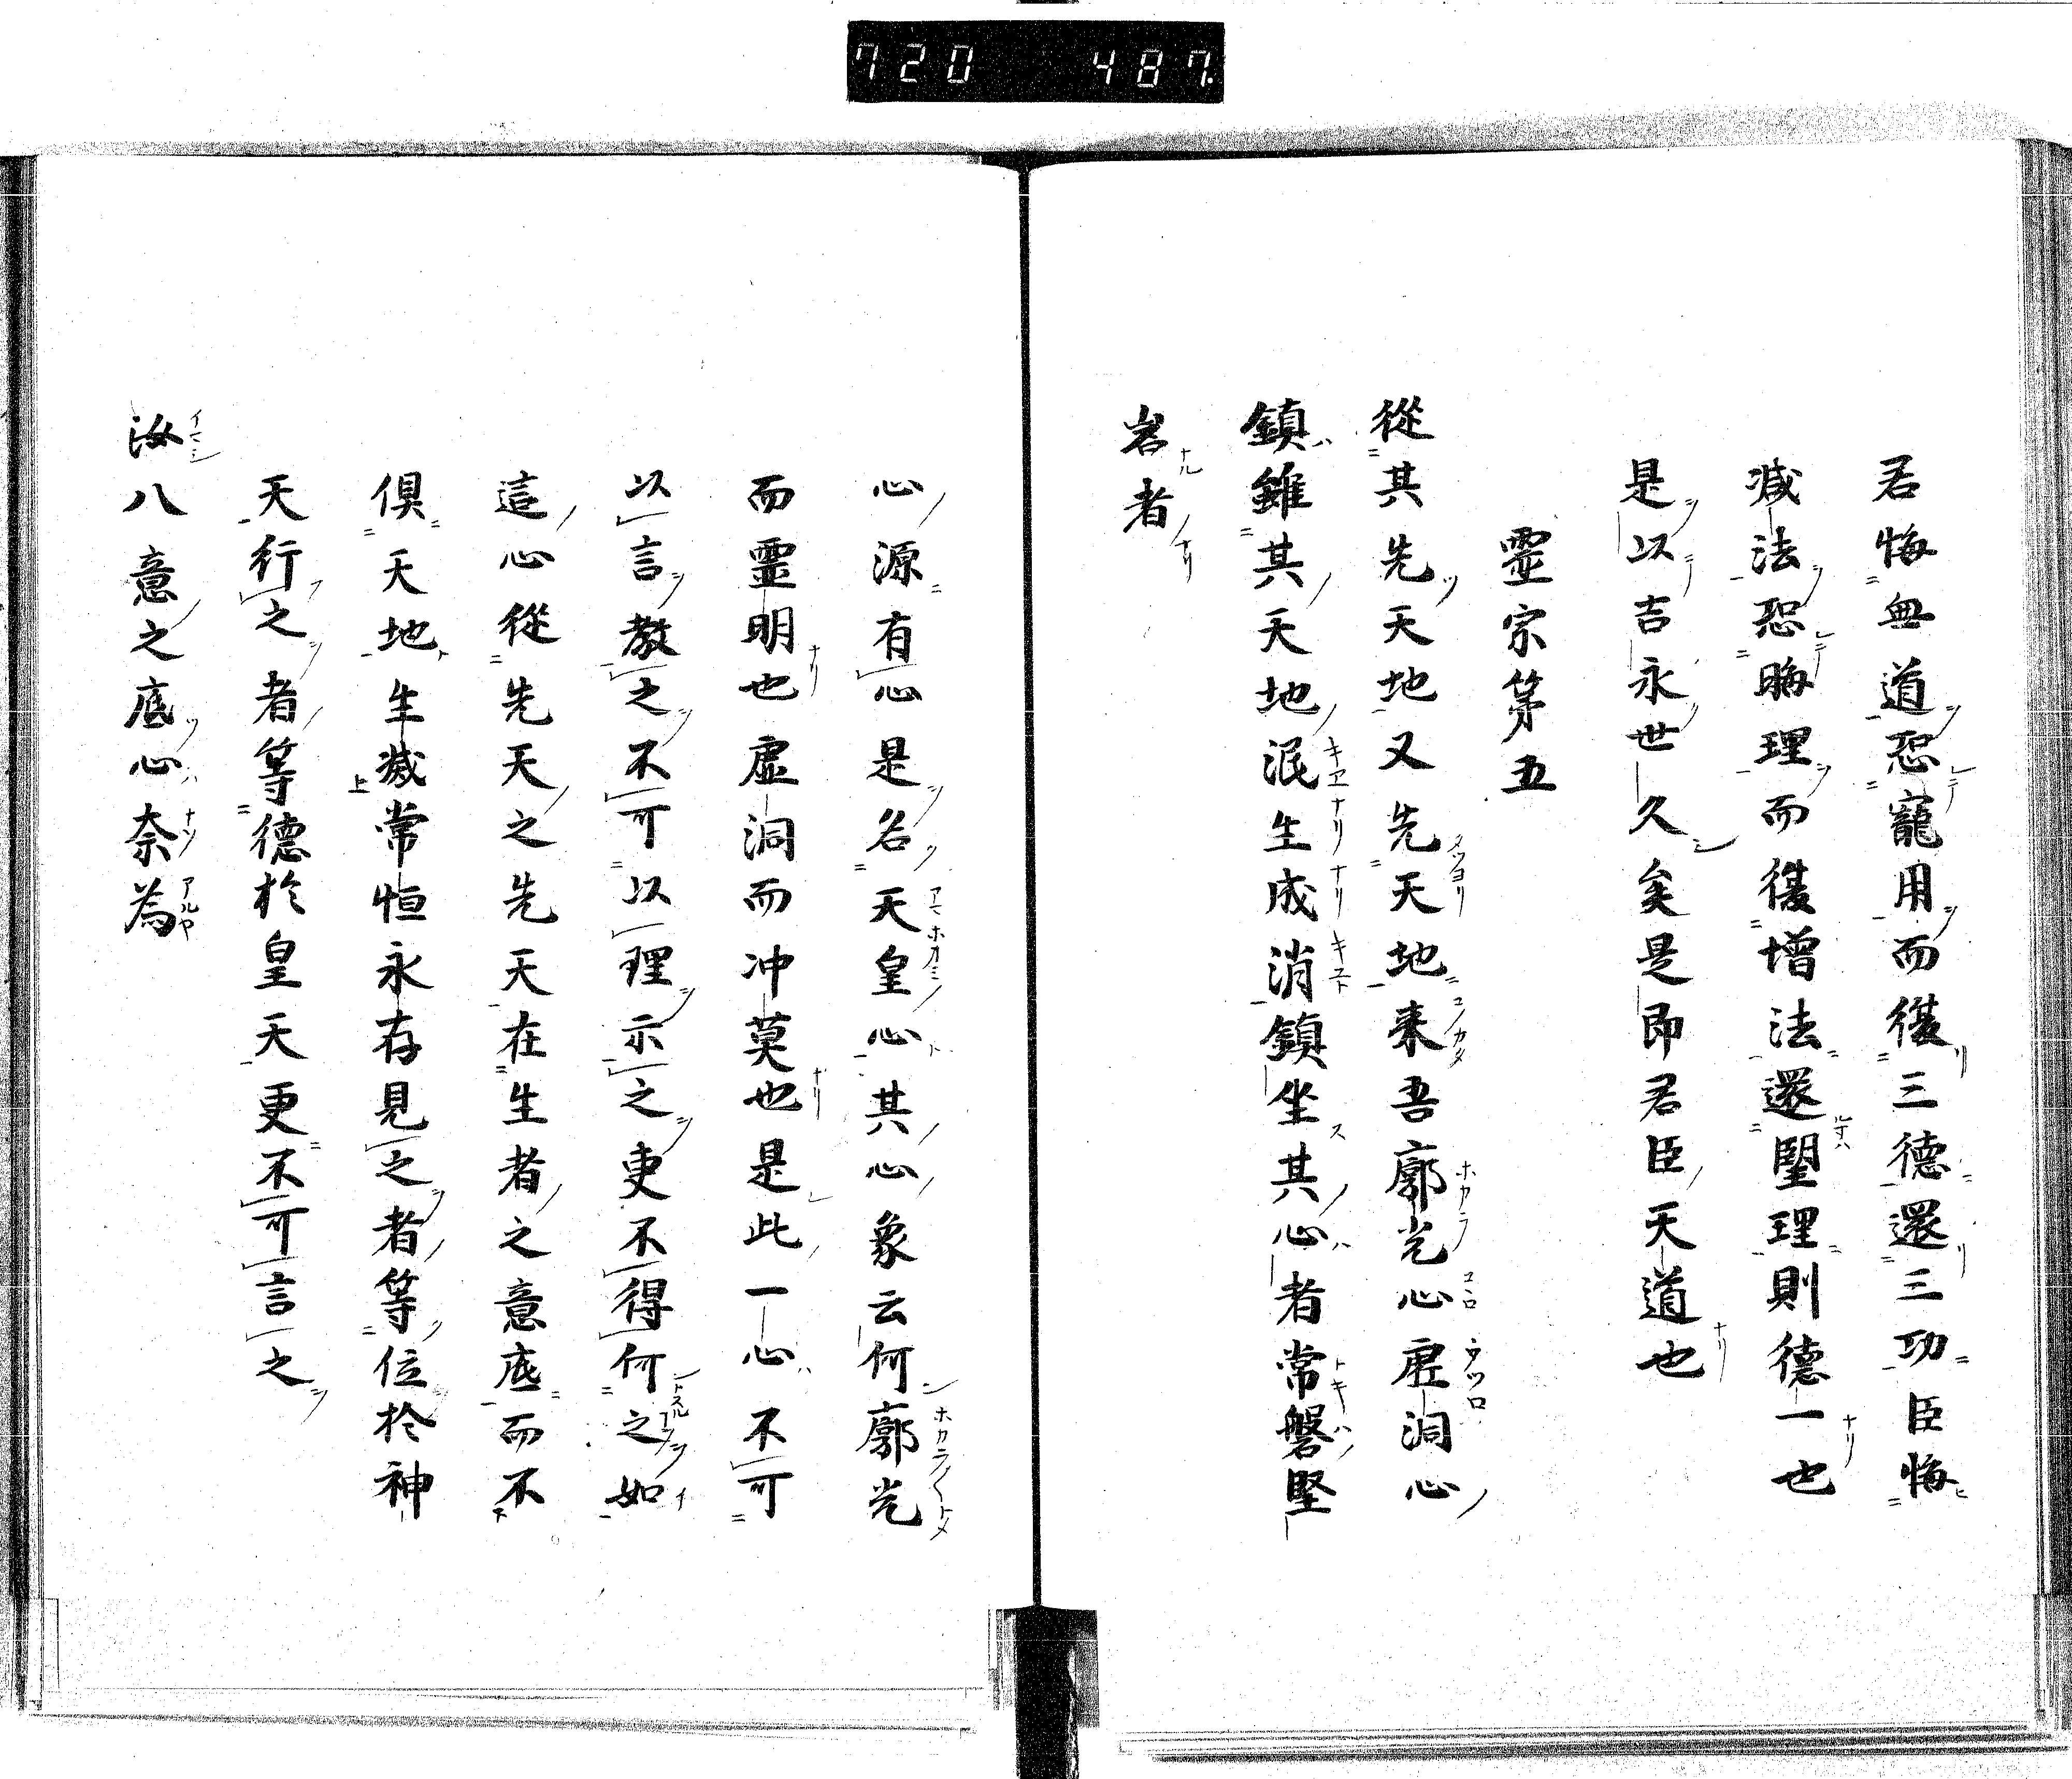 720 487
君悔無道恕寵用而復三德還三功臣悔
減法恕晦理而復增法還堅理則德一也
是以吉永世久矣是即君臣天道也
靈宗第五
從其先天地又先天地來吾廓光心虛洞心
鎮雖其天地泯生成消鎮坐其心者常磐堅
岩者
心源有心是名天皇心其心象云何廓光
而靈明也虛洞而冲莫也是此一心不可
以言教之不可以理示之更不得何之如
這心從先天之先天在生者之意底而不
俱天地生滅常恒永存見之者等位於神
天行之者等德於皇天更不可言之
汝八意之底心奈為